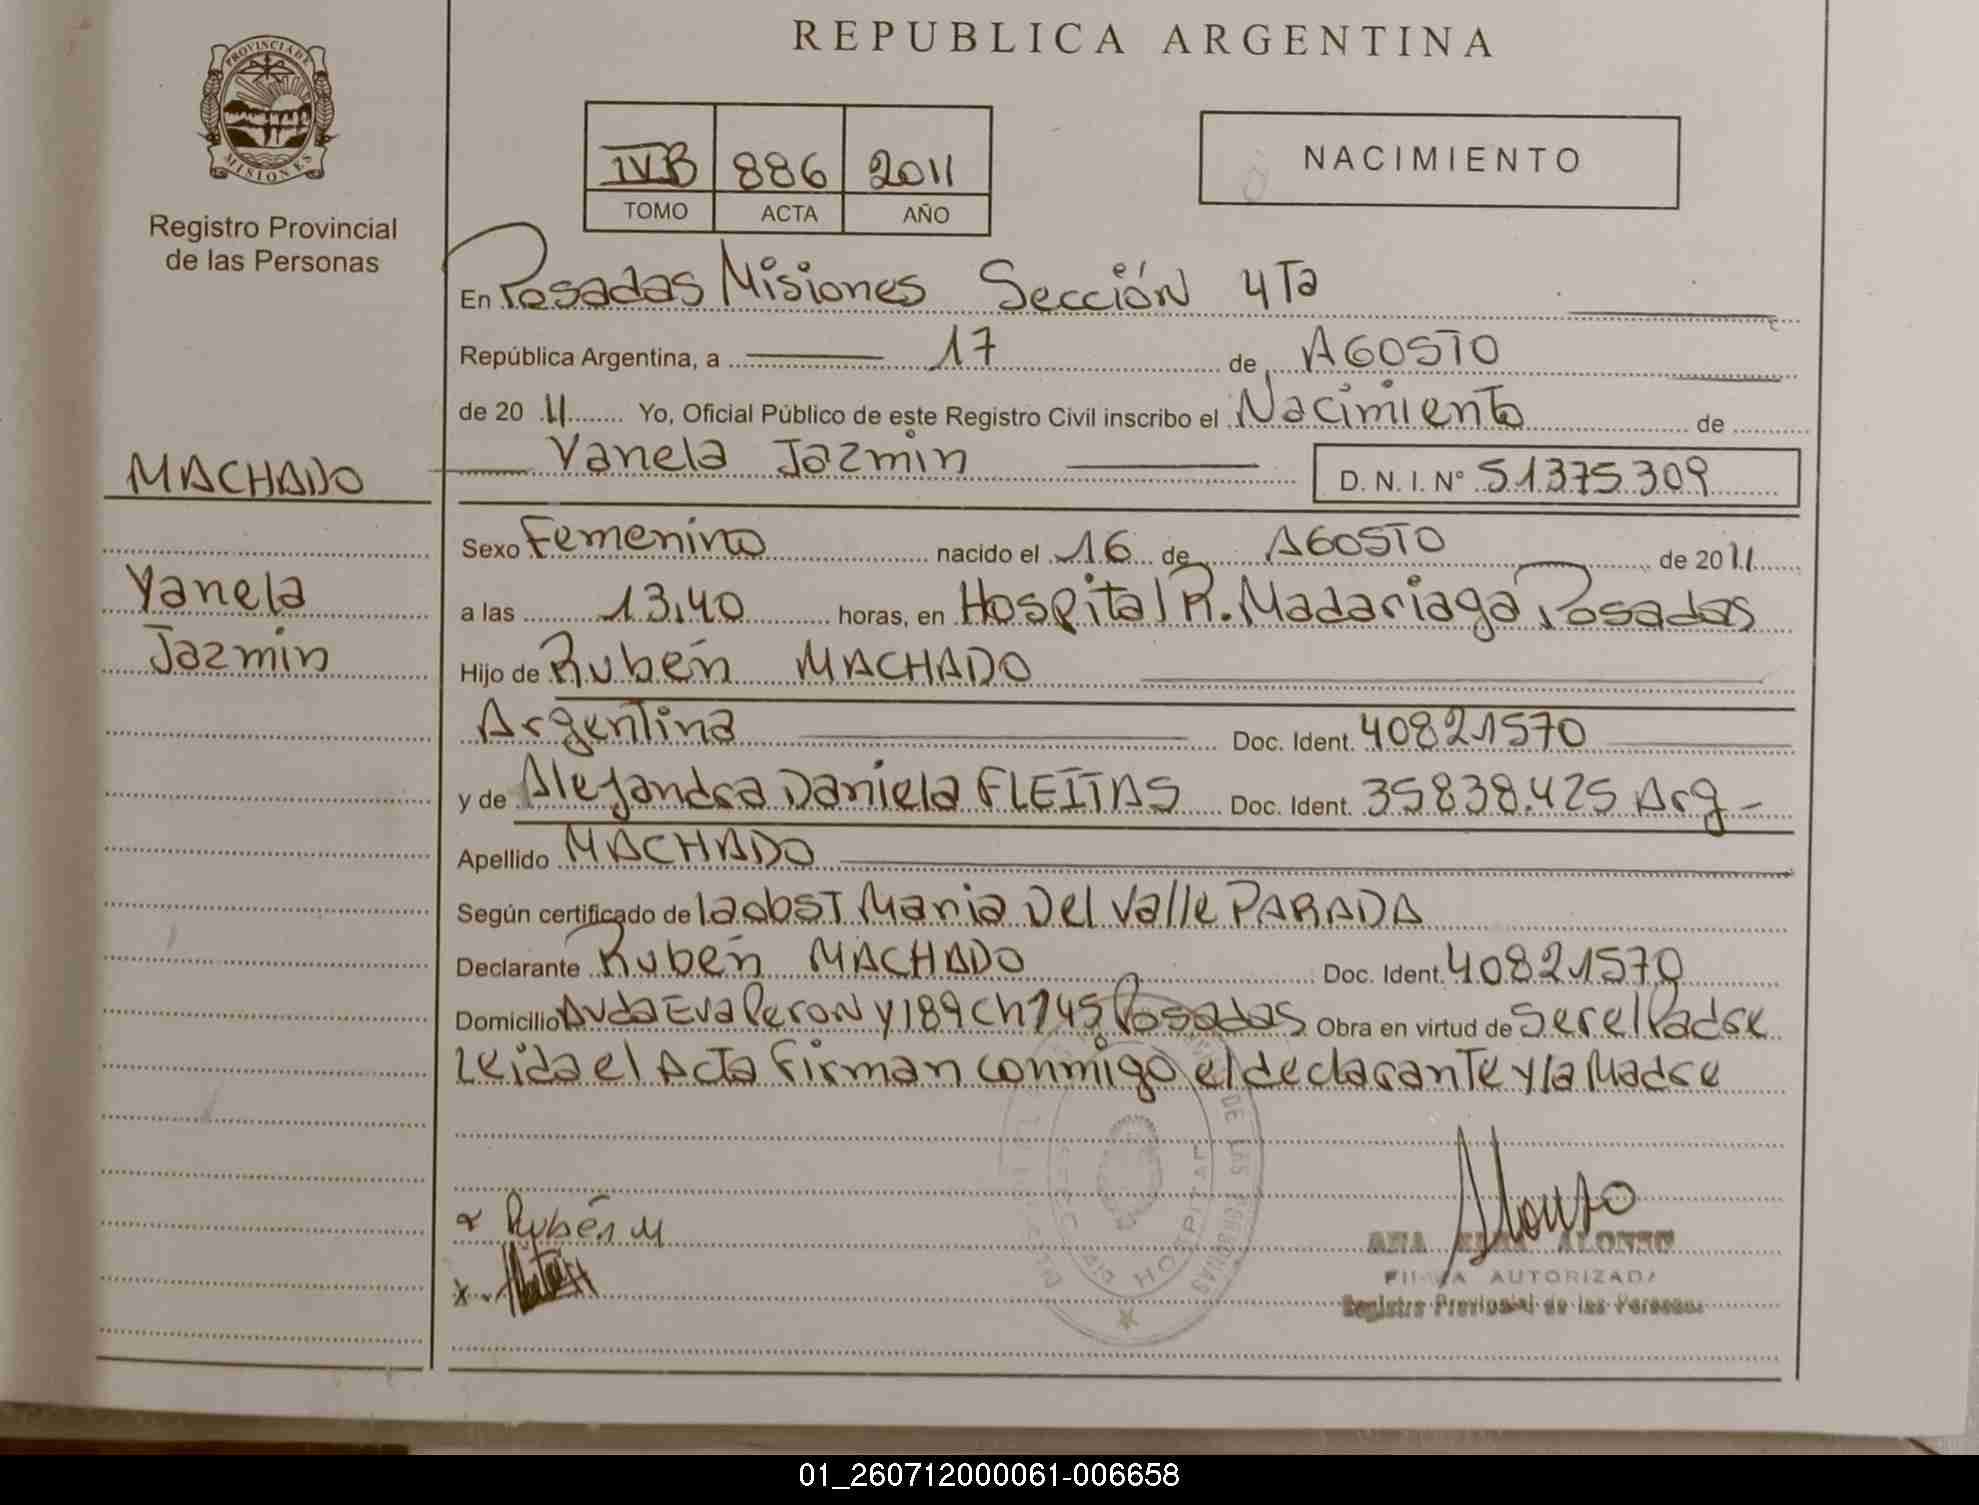 REPUBLICA ARGENTINA
PROVINCIA DE
MISIONES
Registro Provincial
de las Personas
IVB 886 2011
TOMO ACTA AÑO
NACIMIENTO
En Posadas Misiones Sección 4Ta
República Argentina, a 17 de AGOSTO
de 20 11 Yo, Oficial Público de este Registro Civil inscribo el Nacimiento de
Yanela Jazmin D. N. I. Nº 51375309
MACHADO
Yanela
Jazmin
Sexo Femenino nacido el 16 de AGOSTO de 2011
a las 13.40 horas, en Hospital R. Madariaga Posadas
Hijo de Rubén MACHADO
Argentina Doc. Ident. 40821570
y de Alejandra Daniela FLEITAS Doc. Ident. 35838.425 Arg
Apellido MACHADO
Según certificado de la obst Maria Del Valle PARADA
Declarante Rubén MACHADO Doc. Ident. 40821570
Domicilio Avda Eva Peron y 189 Ch 145 Posadas Obra en virtud de Ser el Padre
Leida el Acta Firman conmigo el declarante y la Madre
Rubén M
Alonso
ANA ALONSO
FIRMA AUTORIZADA
Registro Provincial de las Personas
DE LAS PERSONAS
HOSPITAL
01_260712000061-006658